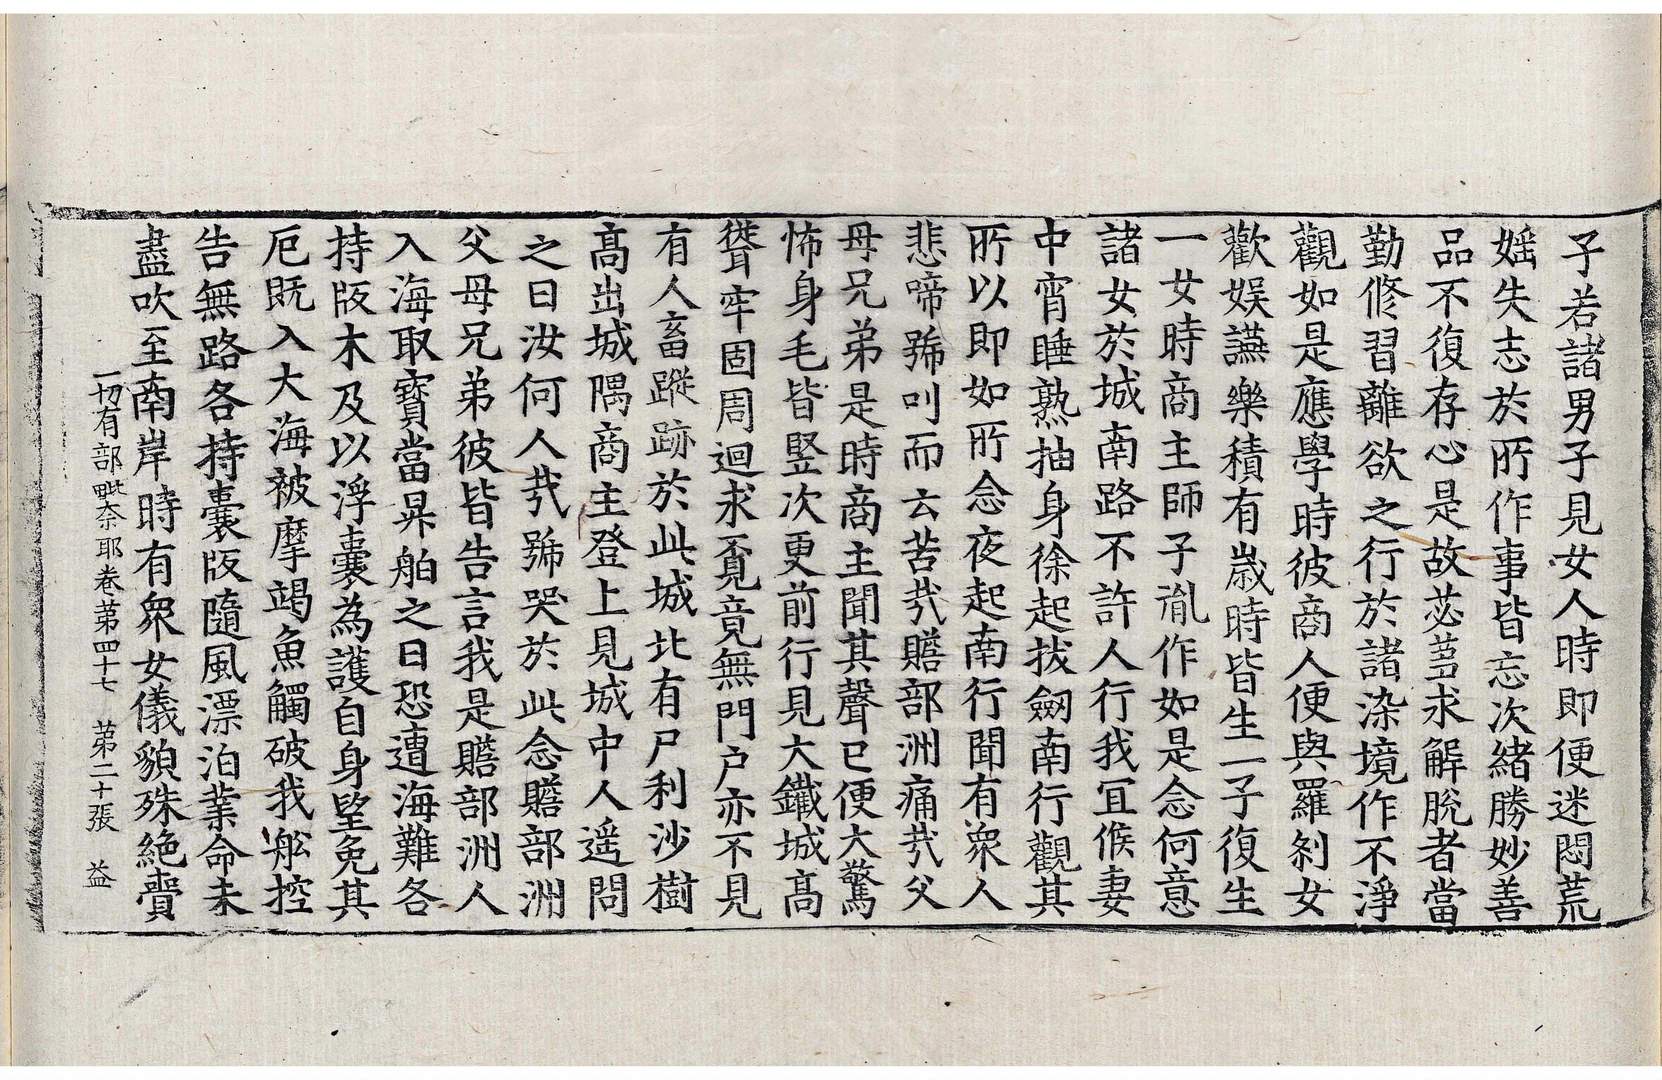 子若諸男子見女人時即便迷悶荒
婬失志於所作事皆忘次緒勝妙善
品不復存心是故苾蒭求解脫者當
勤修習離欲之行於諸染境作不淨
觀如是應學時彼商人便與羅刹女
歡娛讌樂積有歲時皆生一子復生
一女時商主師子胤作如是念何意
諸女於城南路不許人行我宜候妻
中宵睡熟抽身徐起拔劒南行觀其
所以即如所念夜起南行聞有衆人
悲啼號叫而云苦㢤贍部洲痛㢤父
母兄弟是時商主聞其聲已便大驚
怖身毛皆竪次更前行見大鐵城高
聳牢固周迴求覓竟無門户亦不見
有人畜蹤跡於此城北有尸利沙樹
髙出城隅商主登上見城中人遥問
之曰汝何人㢤號哭於此念贍部洲
父母兄弟彼皆告言我是贍部洲人
入海取寶當昇舶之日恐遭海難各
持版木及以浮囊為護自身望免其
厄既入大海被摩竭魚觸破我舩控
告無路各持囊版隨風漂泊業命未
盡吹至南岸時有衆女儀貌殊絶賷
一切有部毗奈耶卷第四十七　第二十張　益